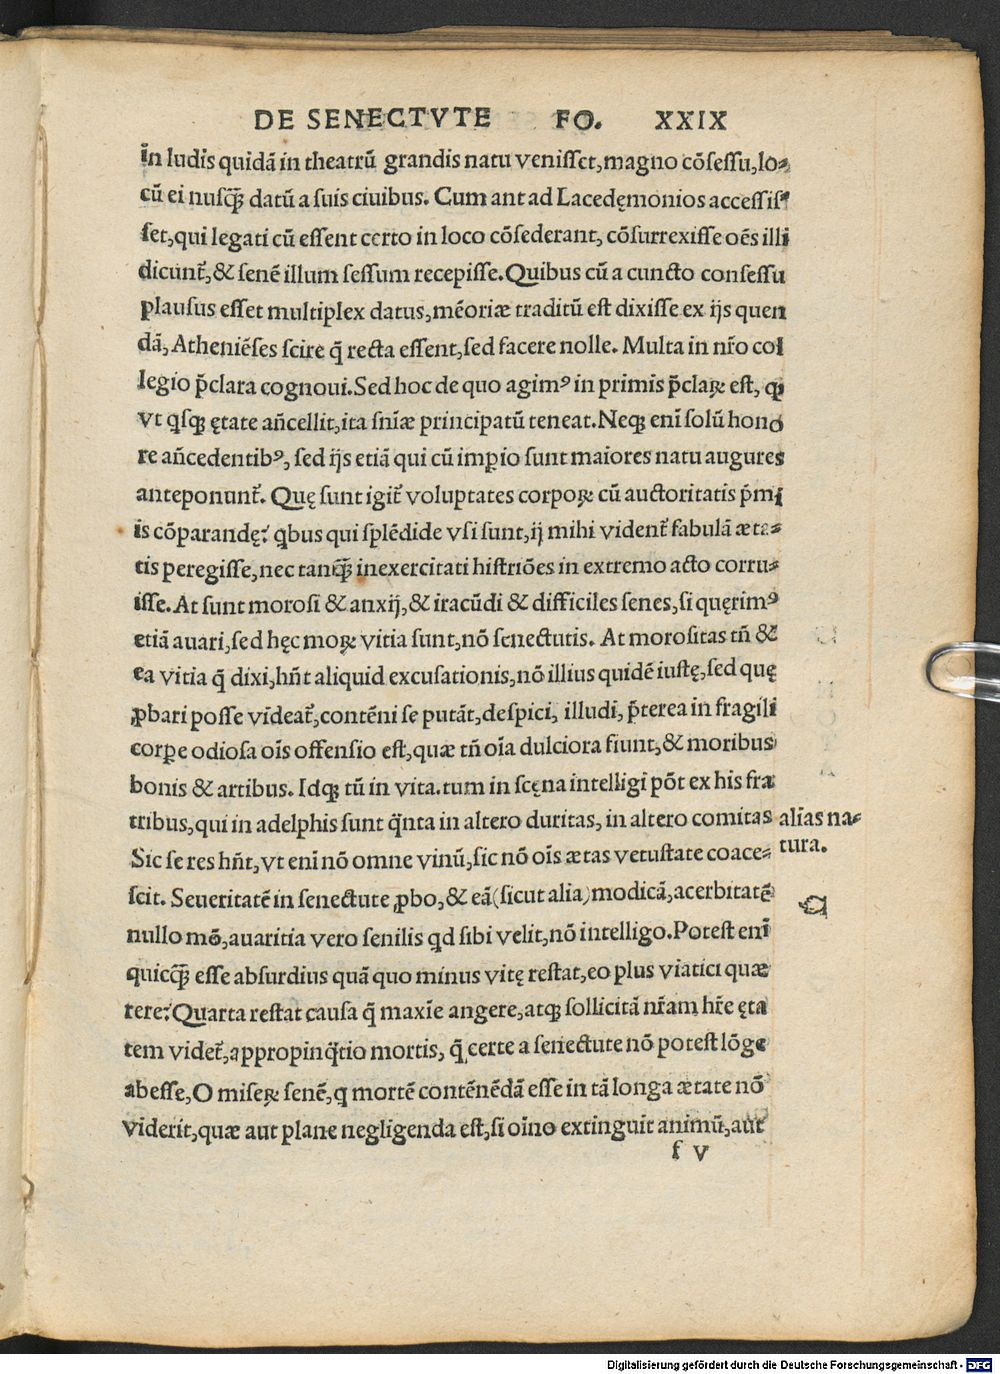 DE SENECTVTE FO. XXIX
in ludis quidā in theatrū grandis natu venisset, magno cōsessu, lo-
cū ei nusq̄ȝ datū a suis ciuibus. Cum ant ad Lacedęmonios accessis-
set, qui legati cū essent certo in loco cōsederant, cōsurrexisse oēs illi
dicunt᷑, & senē illum sessum recepisse. Quibus cū a cuncto consessu
plausus esset multiplex datus, mēoriæ traditū est dixisse ex ijs quen
dā, Atheniēses scire q̄ recta essent, sed facere nolle. Multa in nr̄o col
legio p̄clara cognoui. Sed hoc de quo agimꝰ in primis p̄claꝝ est, ꝙ
vt qsqȝ ętate an̄cellit, ita sn̄iæ principatū teneat. Neqȝ enī solū hono
re an̄cedentibꝰ, sed ijs etiā qui cū imꝑio sunt maiores natu augures
anteponunt᷑. Quę sunt igit᷑ voluptates corpoꝝ cū auctoritatis p̄mi
is cōparandę? qbus qui splēdide vsi sunt, ij mihi vident᷑ fabulā æta-
tis peregisse, nec tanq̄ȝ inexercitati histriōes in extremo acto corru-
isse. At sunt morosi & anxij, & iracūdi & difficiles senes, si quęrimꝰ
etiā auari, sed hęc moꝝ vitia sunt, nō senectutis. At morositas tn̄ &
ea vitia q̄ dixi, hn̄t aliquid excusationis, nō illius quidē iustę, sed quę
ꝓbari posse videat᷑, contēni se putāt, despici, illudi, p̄terea in fragili
corꝑe odiosa oīs offensio est, quæ tn̄ oīa dulciora fiunt, & moribus
bonis & artibus. Idqȝ tū in vita. tum in scęna intelligi pōt ex his fra
tribus, qui in adelphis sunt q̄nta in altero duritas, in altero comitas alias na-
Sic se res hn̄t, vt enī nō omne vinū, sic nō oīs ætas vetustate coace- tura.
scit. Seueritatē in senectute ꝓbo, & eā (sicut alia) modicā, acerbitatē
nullo mō, auaritia vero senilis qd sibi velit, nō intelligo. Potest enī
quicq̄ȝ esse absurdius quā quo minus vitę restat, eo plus viatici quæ
rere? Quarta restat causa q̄ maxīe angere, atqȝ sollicitā nr̄am hr̄e ęta
tem videt᷑, appropinq̄tio mortis, q̄ certe a senectute nō potest lōge
abesse, O miseꝝ senē, q mortē contēnēdā esse in tā longa ætate nō
viderit, quæ aut plane negligenda est, si oīno extinguit animū, aut
f v
Digitalisierung gefördert durch die Deutsche Forschungsgemeinschaft - DFG